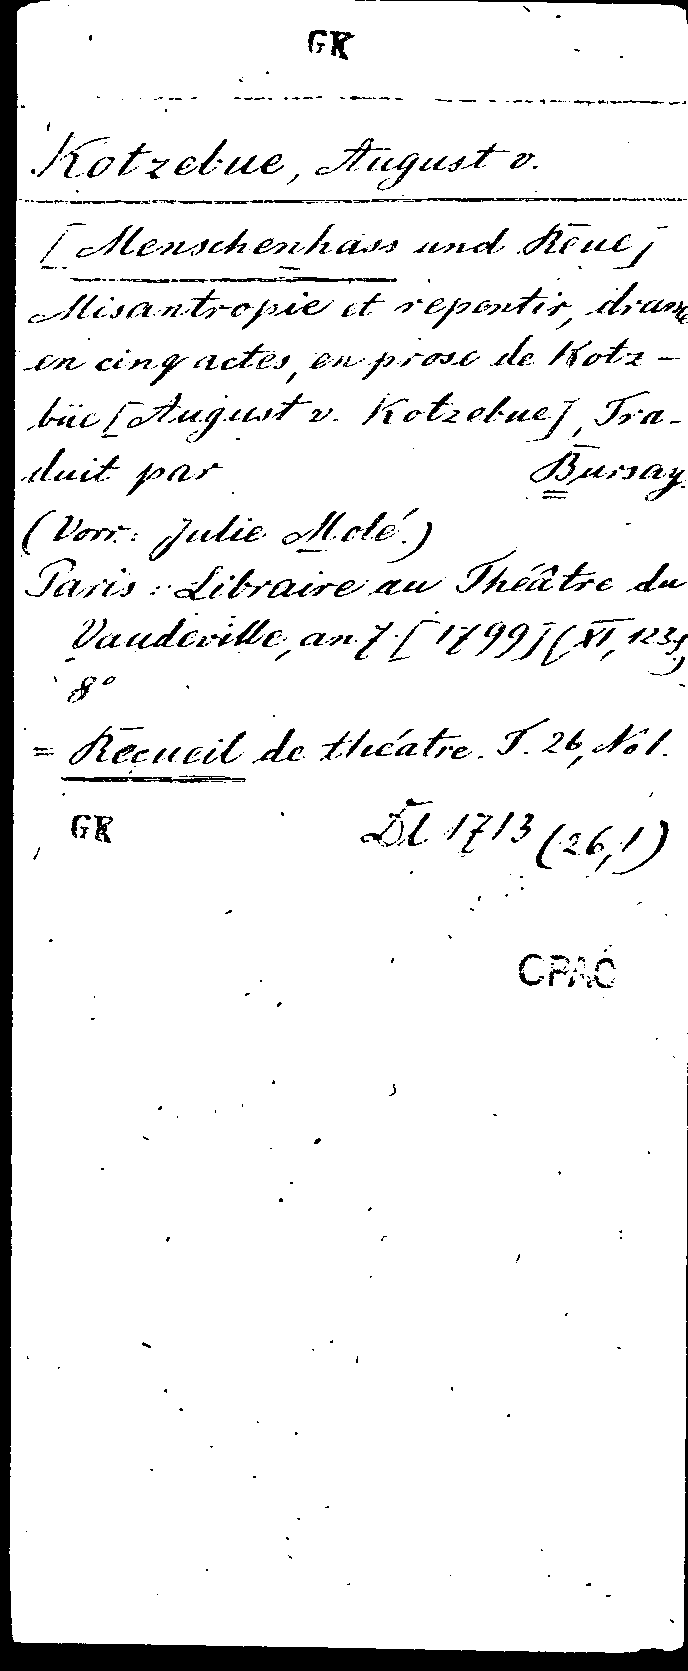 GK
Kotzebue, August v.
[Menschenhass und Reue]
Misantropie et repentir, drame
en cinq actes, en prose de Kotz-
büe [August v. Kotzebue], Tra-
duit par Bursay.
(Vorr.: Julie Molé.)
Paris: Libraire au Théâtre du
Vaudeville, an 7 [1799] (XI, 123 S,)
8°
= Recueil de théatre. T. 26, No 1.
GK Dl 1713 (26,1)
CPAC